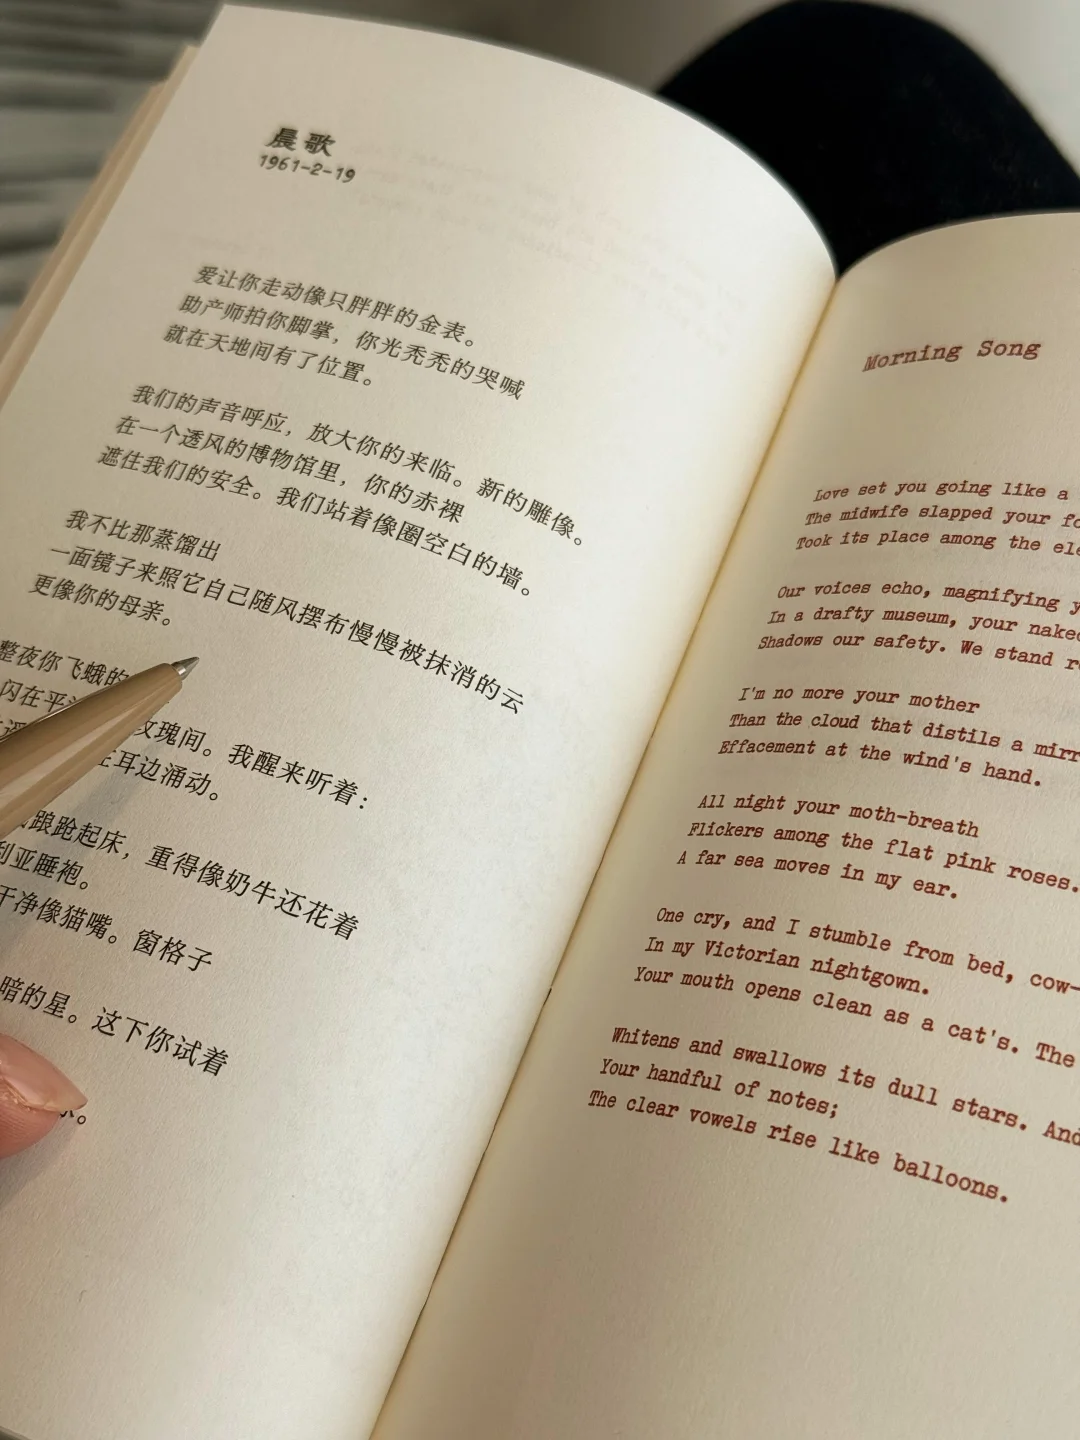 晨歌
1961-2-19
爱让你走动像只胖胖的金表。
助产师拍你脚掌，你光秃秃的哭喊
就在天地间有了位置。
我们的声音呼应，放大你的来临。新的雕像。
在一个透风的博物馆里，你的赤裸
遮住我们的安全。我们站着像圈空白的墙。
我不比那蒸馏出
一面镜子来照它自己随风摆布慢慢被抹消的云
更像你的母亲。
整夜你飞蛾的
闪在平
玫瑰间。我醒来听着：
在耳边涌动。
踉跄起床，重得像奶牛还花着
利亚睡袍。
干净像猫嘴。窗格子
暗的星。这下你试着
Morning Song
Love set you going like a
The midwife slapped your
Took its place among the
Our voices echo, magnifying
In a drafty museum, your
Shadows our safety. We stand
I'm no more your mother
Than the cloud that distils a
Effacement at the wind's hand.
All night your moth-breath
Flickers among the flat pink roses.
A far sea moves in my ear.
One cry, and I stumble from bed, cow-
In my Victorian nightgown.
Your mouth opens clean as a cat's. The
Whitens and swallows its dull stars. And
Your handful of notes;
The clear vowels rise like balloons.